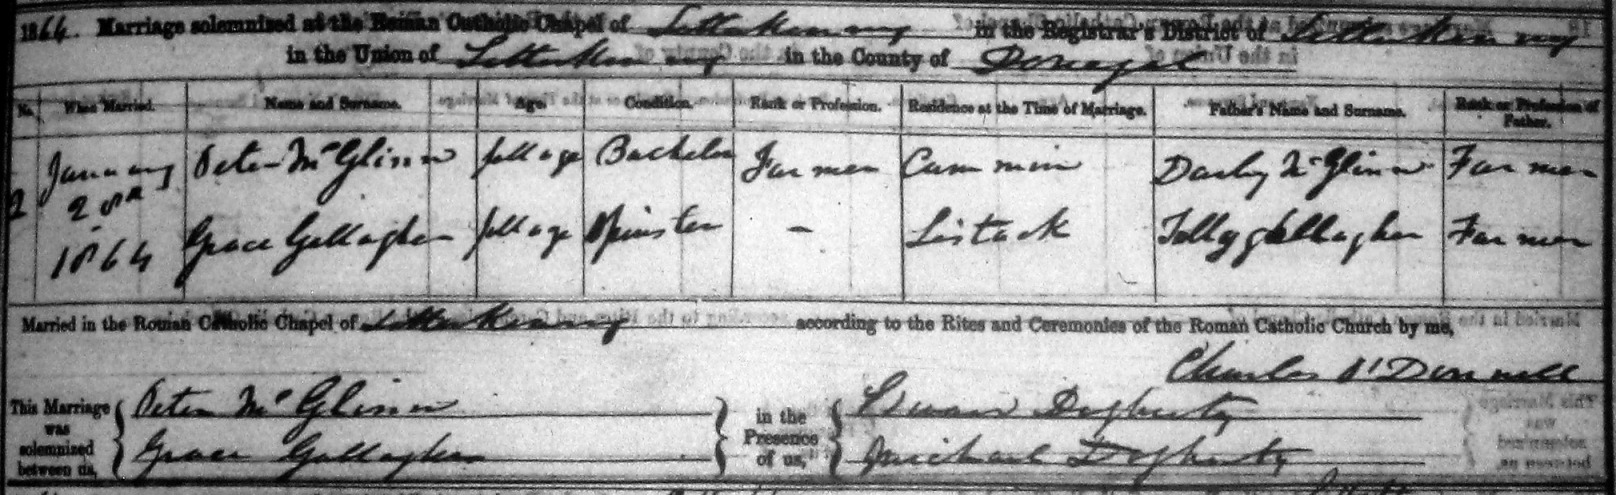 1864. Marriage solemnized at the Roman Catholic Chapel of Letterkenny in the Registrar's District of Letterkenny
in the Union of Letterkenny in the County of Donegal
No. When Married. Name and Surname. Age. Condition. Rank or Profession. Residence at the Time of Marriage. Father's Name and Surname. Rank or Profession of Father.
2 January Peter McGlinn full age Bachelor Farmer Cummin Darby McGlinn Farmer
1864 Grace Gallagher full age Spinster - Listack Gallagher Farmer
Married in the Roman Catholic Chapel of Letterkenny according to the Rites and Ceremonies of the Roman Catholic Church by me,
Charles O'Donnell
This Marriage was solemnized between us, Peter McGlinn in the Presence of us, Dogherty
Grace Gallagher Michael Dogherty